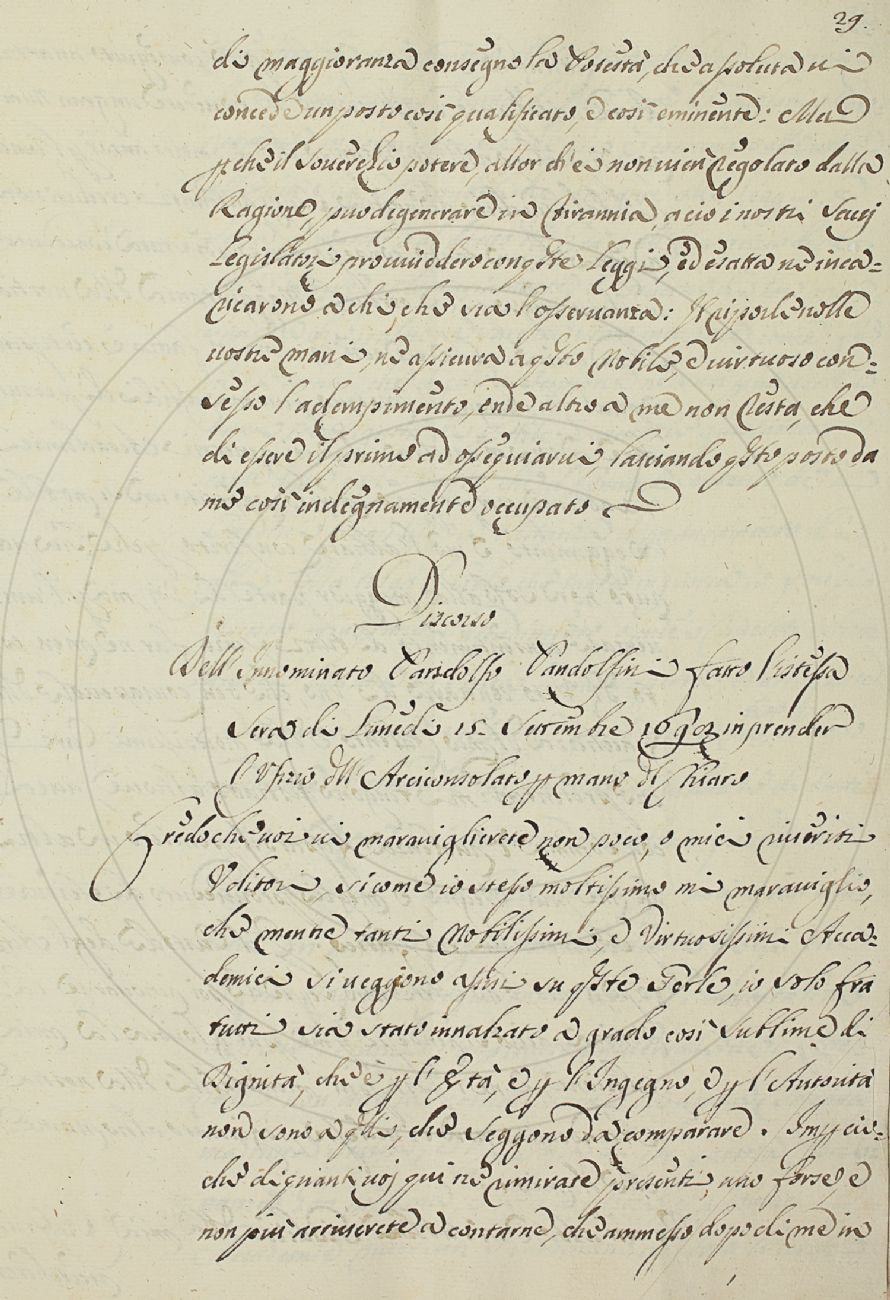 29.
di maggioranza consegno la Potestà, che assoluta vi
concede un posto così qualificato, e così eminente: Ma
p che il soverchio potere, allor ch'ei non vien regolato dalla
Ragione, puo degenerare in tirannia, a cio i nostri Savj
Legislatori provviddero con qste Leggi, ed esatta ne inca=
ricarono a chi che sia l'osservanza: Il riporle nelle
vostre mani, ne assicura a qsto Nobile, e virtuoso con=
sesso l'adempimento, onde altro a me non resta, che
di essere il primo ad ossequiarvi, lasciando qsto posto da
me così indegnamente occupato
Discorso
Dell' Innominato Pandolfo Pandolfini fatto l'istessa
Sera di Lunedì 15. Settembre 1692 in prender
l'Ufizio dll' Arciconsolato p mano di Chiaro
Credo che voi vi maraviglierete non poco, o miei riveriti
Uditori, sicome io stesso moltissimo mi maraviglio,
che mentre tanti Nobilissimi, e Virtuosissimi Acca=
demici si veggono assisi su qste Gerle, io solo fra
tutti sia stato innalzato a grado così sublime di
Dignità, che e p l'Età, e p l'Ingegno, e p l'Autorità
non sono a qlli, che seggono da comparare. Imp cio=
che di quanti voj qui ne rimirate presenti, uno forse, e
non più arriverete a contarne, che ammesso dopo di me in